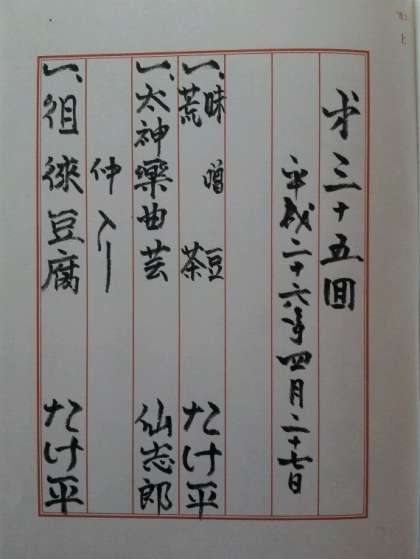 才三十五回
平成二十六年四月二十七日
一、味噌豆 荒茶 たけ平
一、太神樂曲芸 仙志郎
仲入り
一、徂徠豆腐 たけ平
上